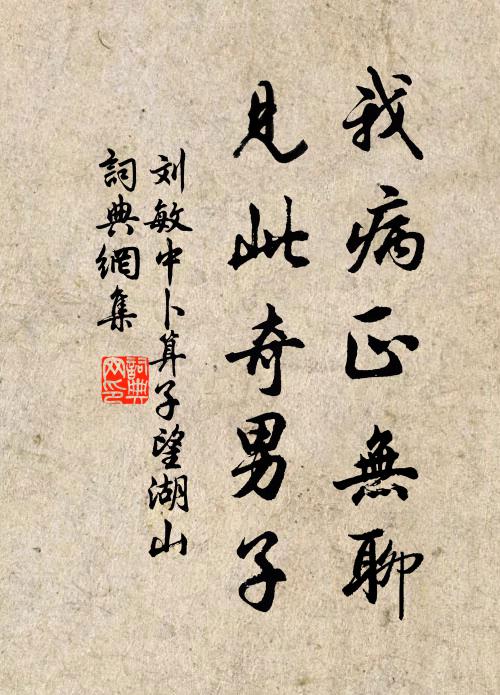 我病正無聊
見此奇男子
刘敏中卜算子望湖山
詞典網集
詞典网印